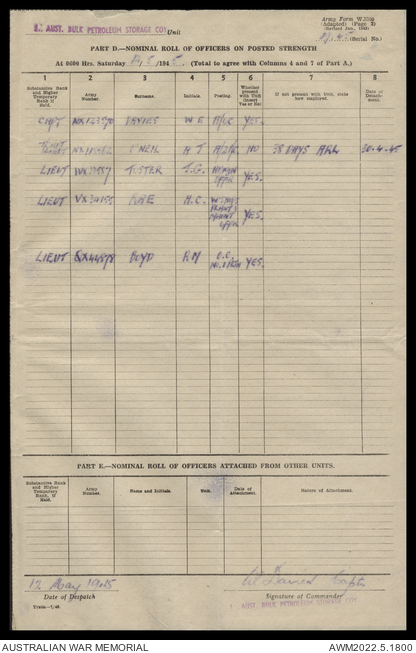 Army Form W.3009
(Adapted) (Page 2)
(Revised Jan., 1945)
(Serial No.)
2. AUST. BULK PETROLEUM STORAGE COY Unit
PART D.—NOMINAL ROLL OF OFFICERS ON POSTED STRENGTH
At 0600 Hrs. Saturday 194 (Total to agree with Columns 4 and 7 of Part A.)
1 2 3 4 5 6 7 8
Substantive Rank and Higher Temporary Rank if Held. Army Number. Surname. Initials. Posting. Whether present with Unit (Insert) Yes or No If not present with Unit, state how employed. Date of Detachment.
CAPT DAVIES W E YES.
O'NEIL A T NO 38 DAYS ARL 30-4-45
LIEUT YES.
LIEUT H.C. YES.
LIEUT BOYD RM O.C. YES.
PART E.—NOMINAL ROLL OF OFFICERS ATTACHED FROM OTHER UNITS.
Substantive Rank and Higher Temporary Rank, if Held. Army Number. Name and Initials. Unit. Date of Attachment. Nature of Attachment.
12 May 1945 W Davies Capt
Date of Despatch Signature of Commander
AUST. BULK PETROLEUM STORAGE COY
AUSTRALIAN WAR MEMORIAL AWM2022.5.1800